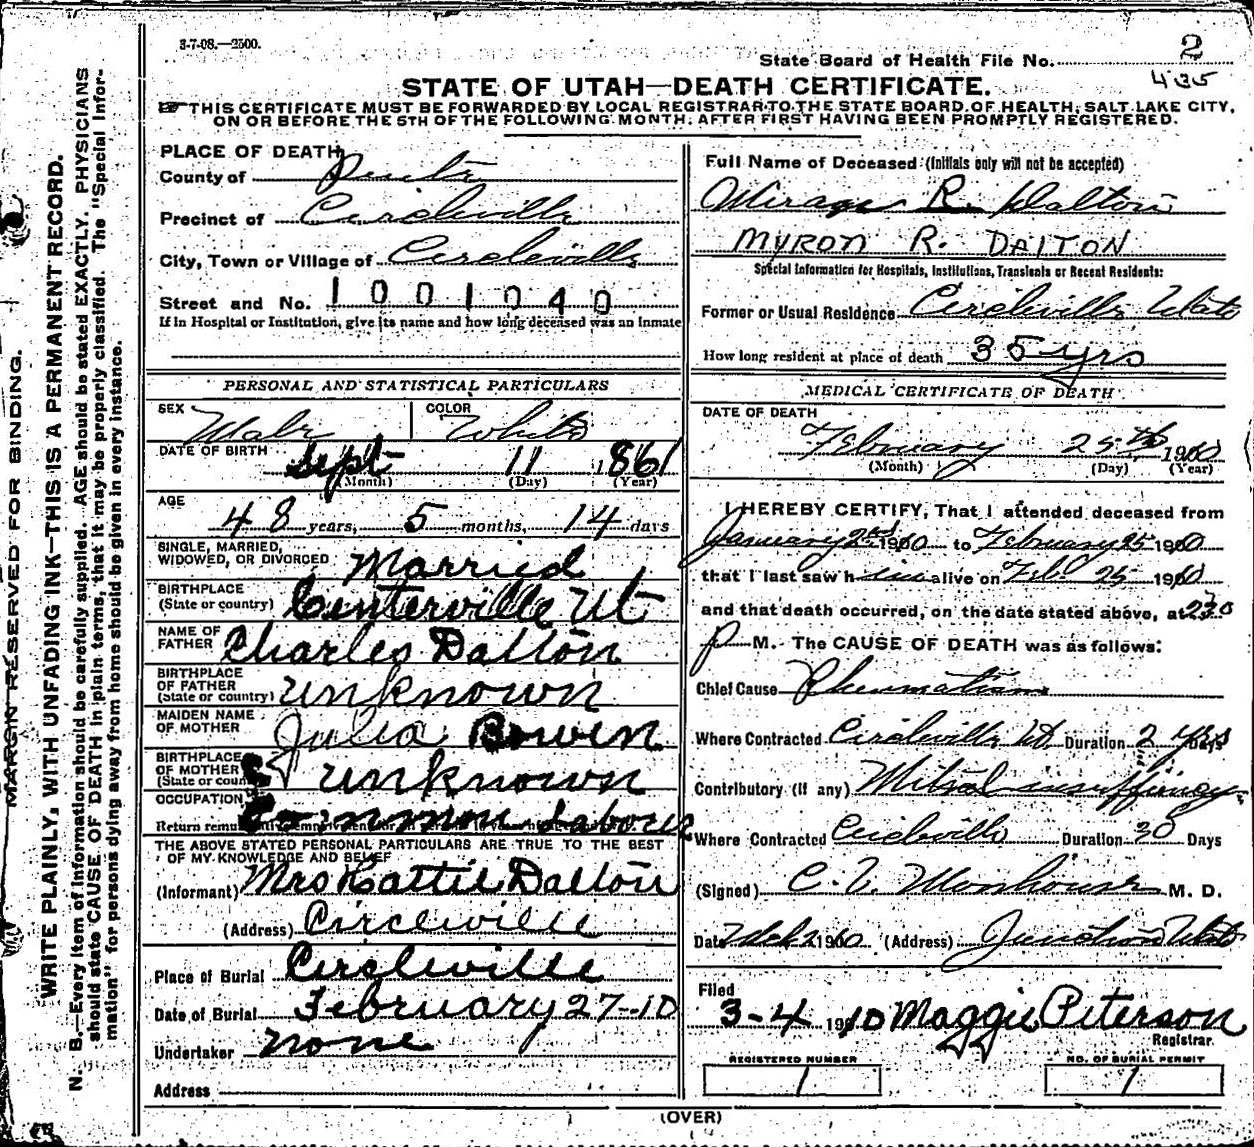 3-7-08.—2500.
State Board of Health File No. 2
435
STATE OF UTAH—DEATH CERTIFICATE.
THIS CERTIFICATE MUST BE FORWARDED BY LOCAL REGISTRAR TO THE STATE BOARD OF HEALTH, SALT LAKE CITY,
ON OR BEFORE THE 5TH OF THE FOLLOWING MONTH, AFTER FIRST HAVING BEEN PROMPTLY REGISTERED.
MARGIN RESERVED FOR BINDING.
WRITE PLAINLY, WITH UNFADING INK—THIS IS A PERMANENT RECORD.
N. B.—Every item of information should be carefully supplied. AGE should be stated EXACTLY. PHYSICIANS
should state CAUSE OF DEATH in plain terms, that it may be properly classified. The "Special Infor-
mation" for persons dying away from home should be given in every instance.
PLACE OF DEATH
County of
Precinct of Circleville
City, Town or Village of Circleville
Street and No. 1001040
If in Hospital or Institution, give its name and how long deceased was an inmate
PERSONAL AND STATISTICAL PARTICULARS
SEX Male COLOR White
DATE OF BIRTH
Sept 11 1861
(Month) (Day) (Year)
AGE
48 years, 5 months, 14 days
SINGLE, MARRIED,
WIDOWED, OR DIVORCED Married
BIRTHPLACE
(State or country) Centerville Ut
NAME OF
FATHER Charles Dalton
BIRTHPLACE
OF FATHER
(State or country) unknown
MAIDEN NAME
OF MOTHER Julia Bowen
BIRTHPLACE
OF MOTHER
(State or country) unknown
OCCUPATION Common Laborer
THE ABOVE STATED PERSONAL PARTICULARS ARE TRUE TO THE BEST
OF MY KNOWLEDGE AND BELIEF
(Informant) Mrs Hattie Dalton
(Address) Circleville
Place of Burial Circleville
Date of Burial February 27-10
Undertaker none
Address
Full Name of Deceased (Initials only will not be accepted)
R. Dalton
MYRON R. DALTON
Special Information for Hospitals, Institutions, Transients or Recent Residents:
Former or Usual Residence Circleville Utah
How long resident at place of death 35 yrs
MEDICAL CERTIFICATE OF DEATH
DATE OF DEATH
February 25th 1910
(Month) (Day) (Year)
I HEREBY CERTIFY, That I attended deceased from
January 2nd 1910 to February 25 1910
that I last saw him alive on Feb. 25 1910
and that death occurred, on the date stated above, at 230
P M. The CAUSE OF DEATH was as follows:
Chief Cause Rheumatism
Where Contracted Circleville Ut Duration 2 yrs Days
Contributory (if any) Mitral insufficiency
Where Contracted Circleville Duration 20 Days
(Signed) C. M. D.
Date Mch 2 1910 (Address) Junction Utah
Filed
3-4 1910 Maggie Peterson
Registrar.
REGISTERED NUMBER
1
NO. OF BURIAL PERMIT
1
(OVER)